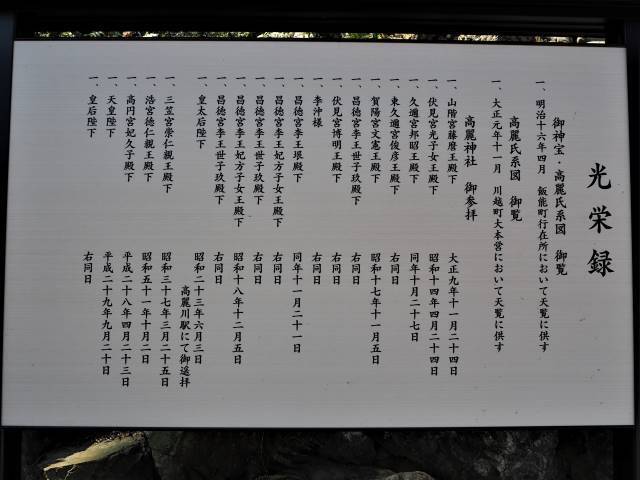 光栄録
御神宝・高麗氏系図 御覧
一、明治十六年四月 飯能町行在所において天覧に供す
高麗氏系図 御覧
一、大正元年十一月 川越町大本営において天覧に供す
高麗神社 御参拝
一、山階宮藤麿王殿下 大正九年十一月二十四日
一、伏見宮光子女王殿下 昭和十四年四月二十四日
一、久邇宮邦昭王殿下 同年十月二十七日
一、東久邇宮俊彦王殿下 右同日
一、賀陽宮文憲王殿下 昭和十七年十一月五日
一、昌徳宮李王世子玖殿下 右同日
一、伏見宮博明王殿下 右同日
一、李沖様 右同日
一、昌徳宮李王垠殿下 同年十一月二十一日
一、昌徳宮李王妃方子女王殿下 右同日
一、昌徳宮李王世子玖殿下 右同日
一、昌徳宮李王妃方子女王殿下 昭和十八年十二月五日
一、昌徳宮李王世子玖殿下 右同日
一、皇太后陛下 昭和二十三年六月三日
高麗川駅にて御遥拝
一、三笠宮崇仁親王殿下 昭和三十七年三月二十五日
一、浩宮徳仁親王殿下 昭和五十一年十月二日
一、高円宮妃久子殿下 平成二十八年四月二十三日
一、天皇陛下 平成二十九年九月二十日
一、皇后陛下 右同日